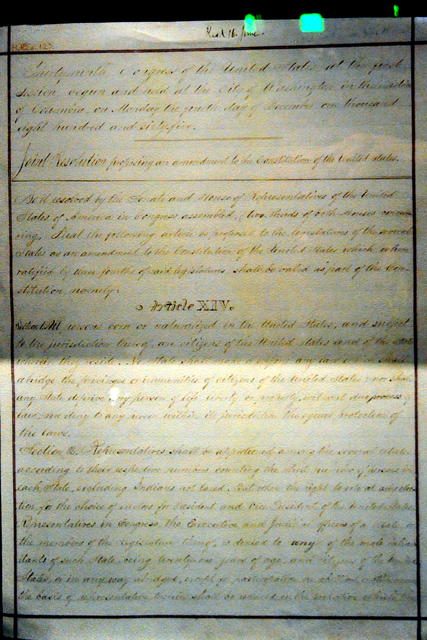 Thirty-ninth Congress of the United States, at the first
Session, begun and held at the City of Washington, in the District
of Columbia, on Monday the fourth day of December one thousand
eight hundred and sixty-five.
Joint Resolution proposing an amendment to the Constitution of the United States.
Be it resolved by the Senate and House of Representatives of the United
States of America in Congress assembled, (two thirds of both Houses concur-
ring,) That the following article be proposed to the legislatures of the several
States as an amendment to the Constitution of the United States, which, when
ratified by three fourths of said legislatures, shall be valid as part of the Con-
stitution, namely:
Article XIV.
Section 1. All persons born or naturalized in the United States, and subject
to the jurisdiction thereof, are citizens of the United States and of the State
wherein they reside. No State shall make or enforce any law which shall
abridge the privileges or immunities of citizens of the United States; nor shall
any State deprive any person of life, liberty, or property, without due process of
law; nor deny to any person within its jurisdiction the equal protection of
the laws.
Section 2. Representatives shall be apportioned among the several States
according to their respective numbers, counting the whole number of persons in
each State, excluding Indians not taxed. But when the right to vote at any elec-
tion for the choice of electors for President and Vice President of the United States,
Representatives in Congress, the Executive and Judicial officers of a State, or
the members of the Legislature thereof, is denied to any of the male inhabi-
tants of such State, being twenty-one years of age, and citizens of the United
States, or in any way abridged, except for participation in rebellion, or other crime,
the basis of representation therein shall be reduced in the proportion which the